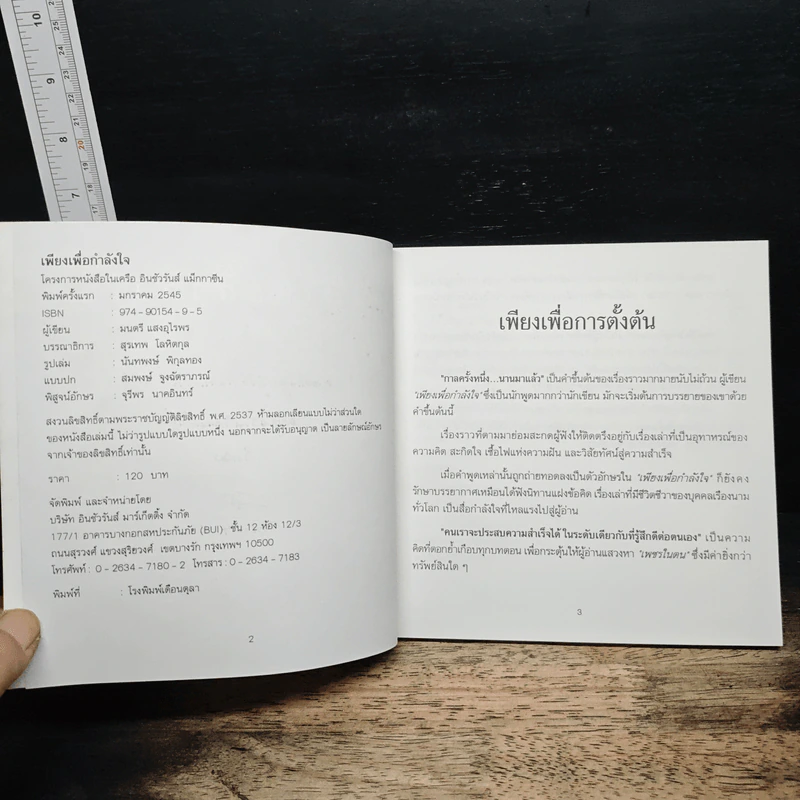 เพียงเพื่อกำลังใจ
โครงการหนังสือในเครือ อินชัวรันส์ แม็กกาซีน
พิมพ์ครั้งแรก : มกราคม 2545
ISBN : 974-90154-9-5
ผู้เขียน : มนตรี แสงอุไรพร
บรรณาธิการ : สุรเทพ โลหิตกุล
รูปเล่ม : นันทพงษ์ พิกุลทอง
แบบปก : สมพงษ์ จูงฉัตราภรณ์
พิสูจน์อักษร : จุรีพร นาคอินทร์
สงวนลิขสิทธิ์ตามพระราชบัญญัติลิขสิทธิ์ พ.ศ. 2537 ห้ามลอกเลียนแบบไม่ว่าส่วนใด
ของหนังสือเล่มนี้ ไม่ว่ารูปแบบใดรูปแบบหนึ่ง นอกจากจะได้รับอนุญาต เป็นลายลักษณ์อักษร
จากเจ้าของลิขสิทธิ์เท่านั้น
ราคา : 120 บาท
จัดพิมพ์ และจำหน่ายโดย
บริษัท อินชัวรันส์ มาร์เก็ตติ้ง จำกัด
177/1 อาคารบางกอกสหประกันภัย (BUI) ชั้น 12 ห้อง 12/3
ถนนสุรวงศ์ แขวงสุริยวงศ์ เขตบางรัก กรุงเทพฯ 10500
โทรศัพท์ : 0-2634-7180-2 โทรสาร : 0-2634-7183
พิมพ์ที่ : โรงพิมพ์เดือนตุลา
2
เพียงเพื่อการตั้งต้น
"กาลครั้งหนึ่ง...นานมาแล้ว" เป็นคำขึ้นต้นของเรื่องราวมากมายนับไม่ถ้วน ผู้เขียน
"เพียงเพื่อกำลังใจ" ซึ่งเป็นนักพูดมากกว่านักเขียน มักจะเริ่มต้นการบรรยายของเขาด้วย
คำขึ้นต้นนี้
เรื่องราวที่ตามมาย่อมสะกดผู้ฟังให้ติดตรึงอยู่กับเรื่องเล่าที่เป็นอุทาหรณ์ของ
ความคิด สะกิดใจ เชื้อไฟแห่งความฝัน และวิสัยทัศน์สู่ความสำเร็จ
เมื่อคำพูดเหล่านั้นถูกถ่ายทอดลงเป็นตัวอักษรใน "เพียงเพื่อกำลังใจ" ก็ยังคง
รักษาบรรยากาศเหมือนได้ฟังนิทานแฝงข้อคิด เรื่องเล่าที่มีชีวิตชีวาของบุคคลเรืองนาม
ทั่วโลก เป็นสื่อกำลังใจที่ไหลแรงไปสู่ผู้อ่าน
"คนเราจะประสบความสำเร็จได้ ในระดับเดียวกับที่รู้สึกดีต่อตนเอง" เป็นความ
คิดที่ตอกย้ำเกือบทุกบทตอน เพื่อกระตุ้นให้ผู้อ่านแสวงหา "เพชรในตน" ซึ่งมีค่ายิ่งกว่า
ทรัพย์สินใด ๆ
3
10
9
8
7
25
24
23
22
21
20
19
18
17